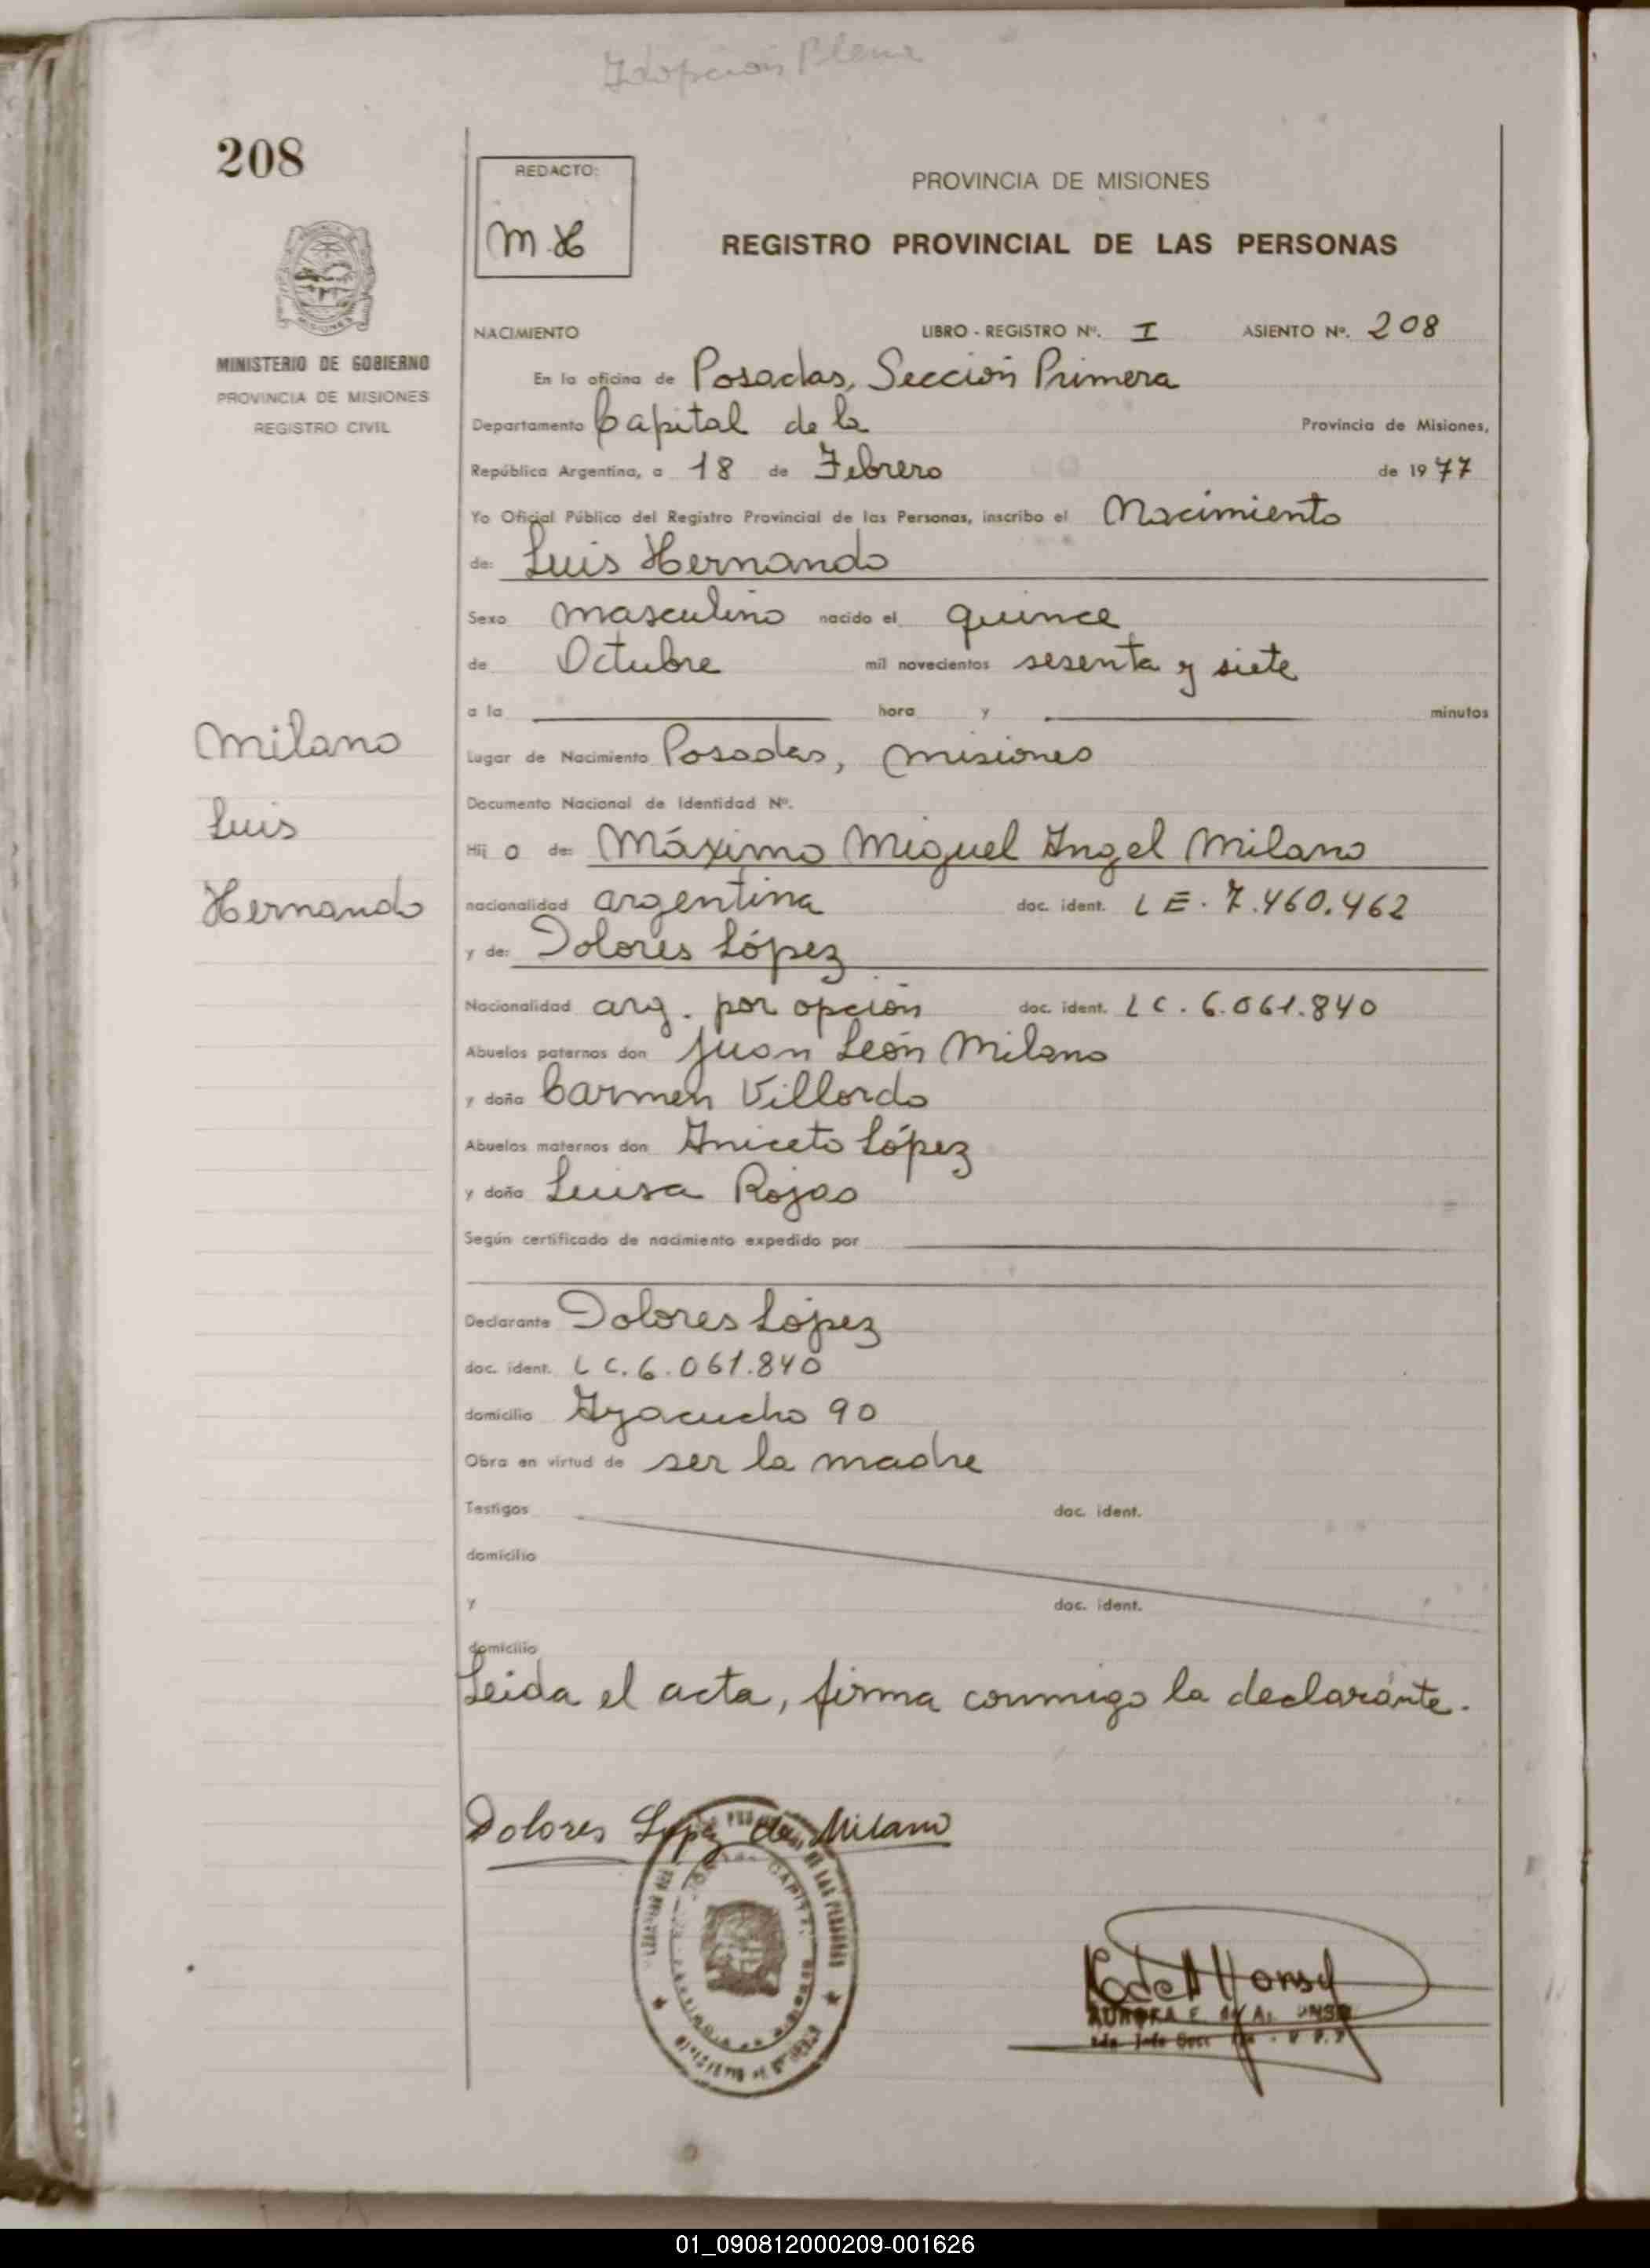 Adopción Plena
208
REDACTO:
M.H
PROVINCIA DE MISIONES
REGISTRO PROVINCIAL DE LAS PERSONAS
MISIONES
MINISTERIO DE GOBIERNO
PROVINCIA DE MISIONES
REGISTRO CIVIL
NACIMIENTO LIBRO - REGISTRO Nº. I ASIENTO Nº. 208
En la oficina de Posadas, Sección Primera
Departamento Capital de la Provincia de Misiones,
República Argentina, a 18 de Febrero de 1977
Yo Oficial Público del Registro Provincial de las Personas, inscribo el Nacimiento
de: Luis Hernando
Sexo masculino nacido el quince
de Octubre mil novecientos sesenta y siete
a la hora y minutos
Milano
Lugar de Nacimiento Posadas, Misiones
Documento Nacional de Identidad Nº.
Luis
Hijo de: Máximo Miguel Angel Milano
Hernando
nacionalidad argentina doc. ident. LE. 7.460.462
y de: Dolores López
Nacionalidad arg. por opción doc. ident. LC. 6.061.840
Abuelos paternos don Juan León Milano
y doña Carmen Villordo
Abuelos maternos don Aniceto López
y doña Luisa Rojas
Según certificado de nacimiento expedido por
Declarante Dolores López
doc. ident. LC. 6.061.840
domicilio Ayacucho 90
Obra en virtud de ser la madre
Testigos doc. ident.
domicilio
y doc. ident.
domicilio
Leida el acta, firma conmigo la declarante.
Dolores Lopez de Milano
DE LAS PERSONAS
CAPITAL
AURORA F. de
01_090812000209-001626